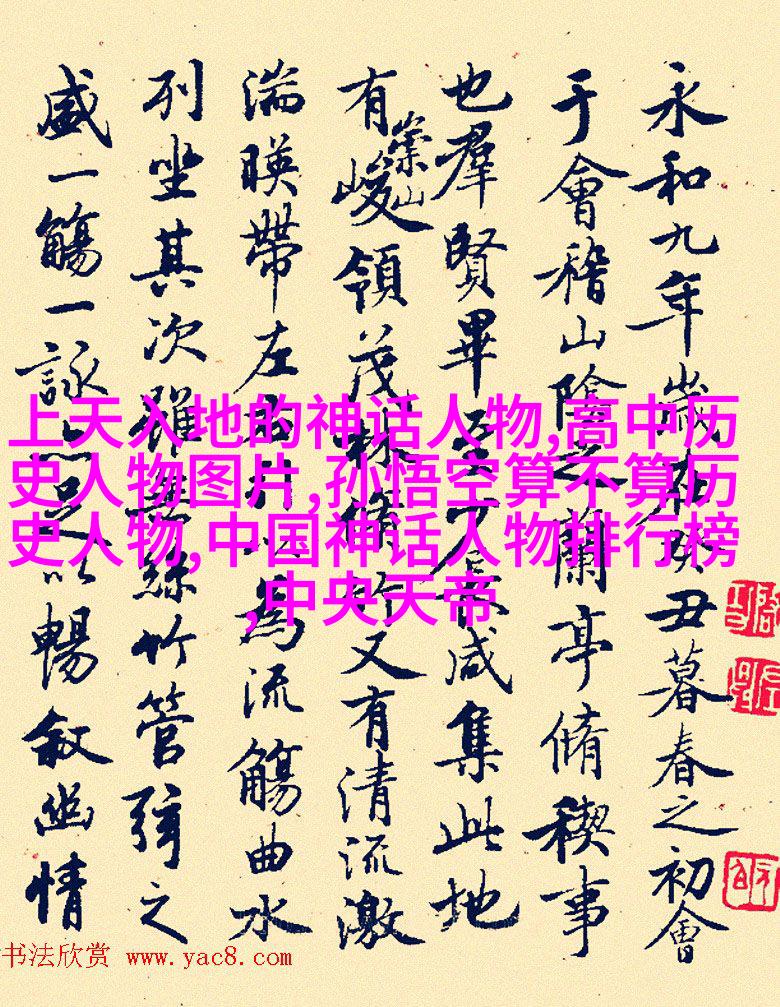 永和九年歲在癸丑暮春之初會
于會稽山陰之蘭亭脩稧事
也羣賢畢至少長咸集此地
有崇山峻領茂林脩竹又有清流激
湍暎帶左右引以為流觴曲水
列坐其次雖無絲竹管弦之
盛一觴一詠亦足以暢敘幽情
上天入地的神话人物,高中历
史人物图片,孙悟空算不算历
史人物,中国神话人物排行榜
,中央天帝
书法欣赏 www.yac8.com